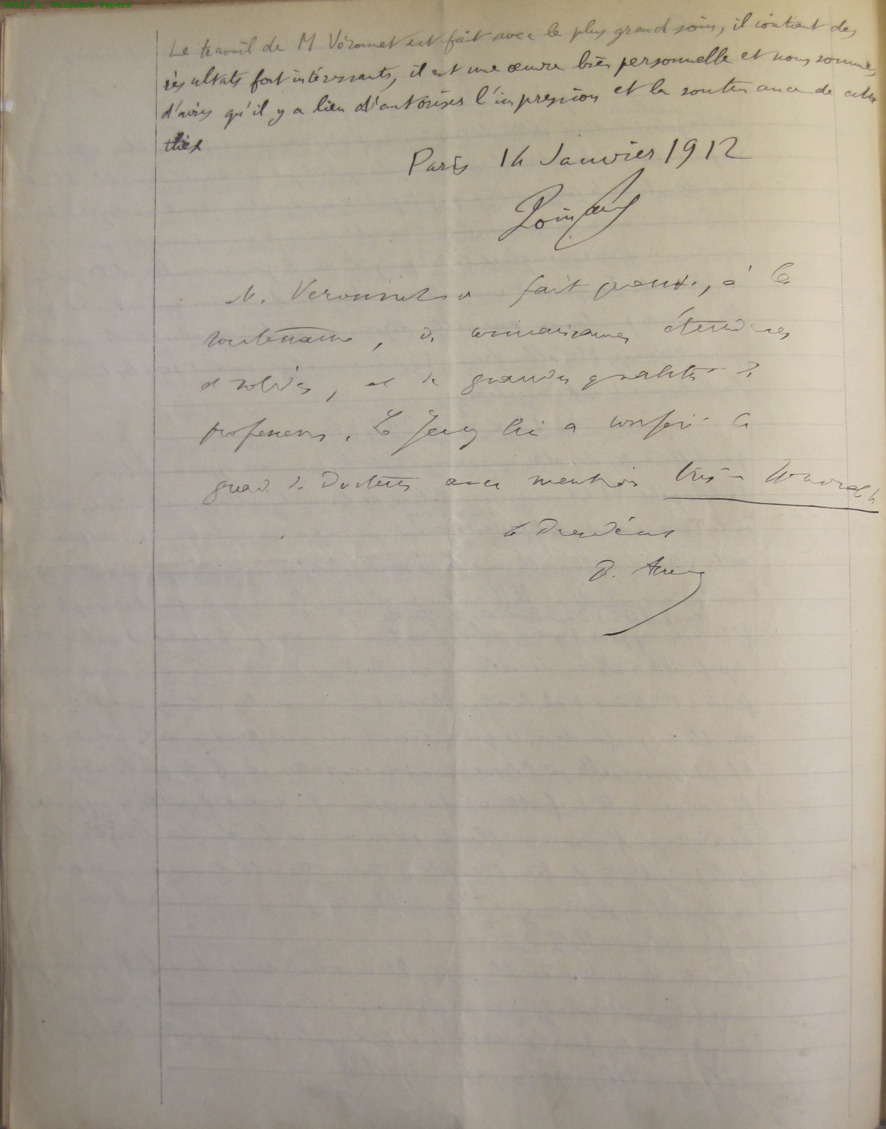 Le travail de M Véronnet est fait avec le plus grand soin, il contient des
résultats fort intéressants, il est une œuvre bien personnelle et nous sommes
d'avis qu'il y a lieu d'autoriser l'impression et la soutenance de cette
thèse
Paris 14 Janvier 1912
Poincaré
M. Véronnet a fait preuve, à la
soutenance, de connaissances étendues
et solides, et de grandes qualités de
professeur. Le Jury lui a conféré le
grade de Docteur avec mention très honorable
Le Président
P. Appell